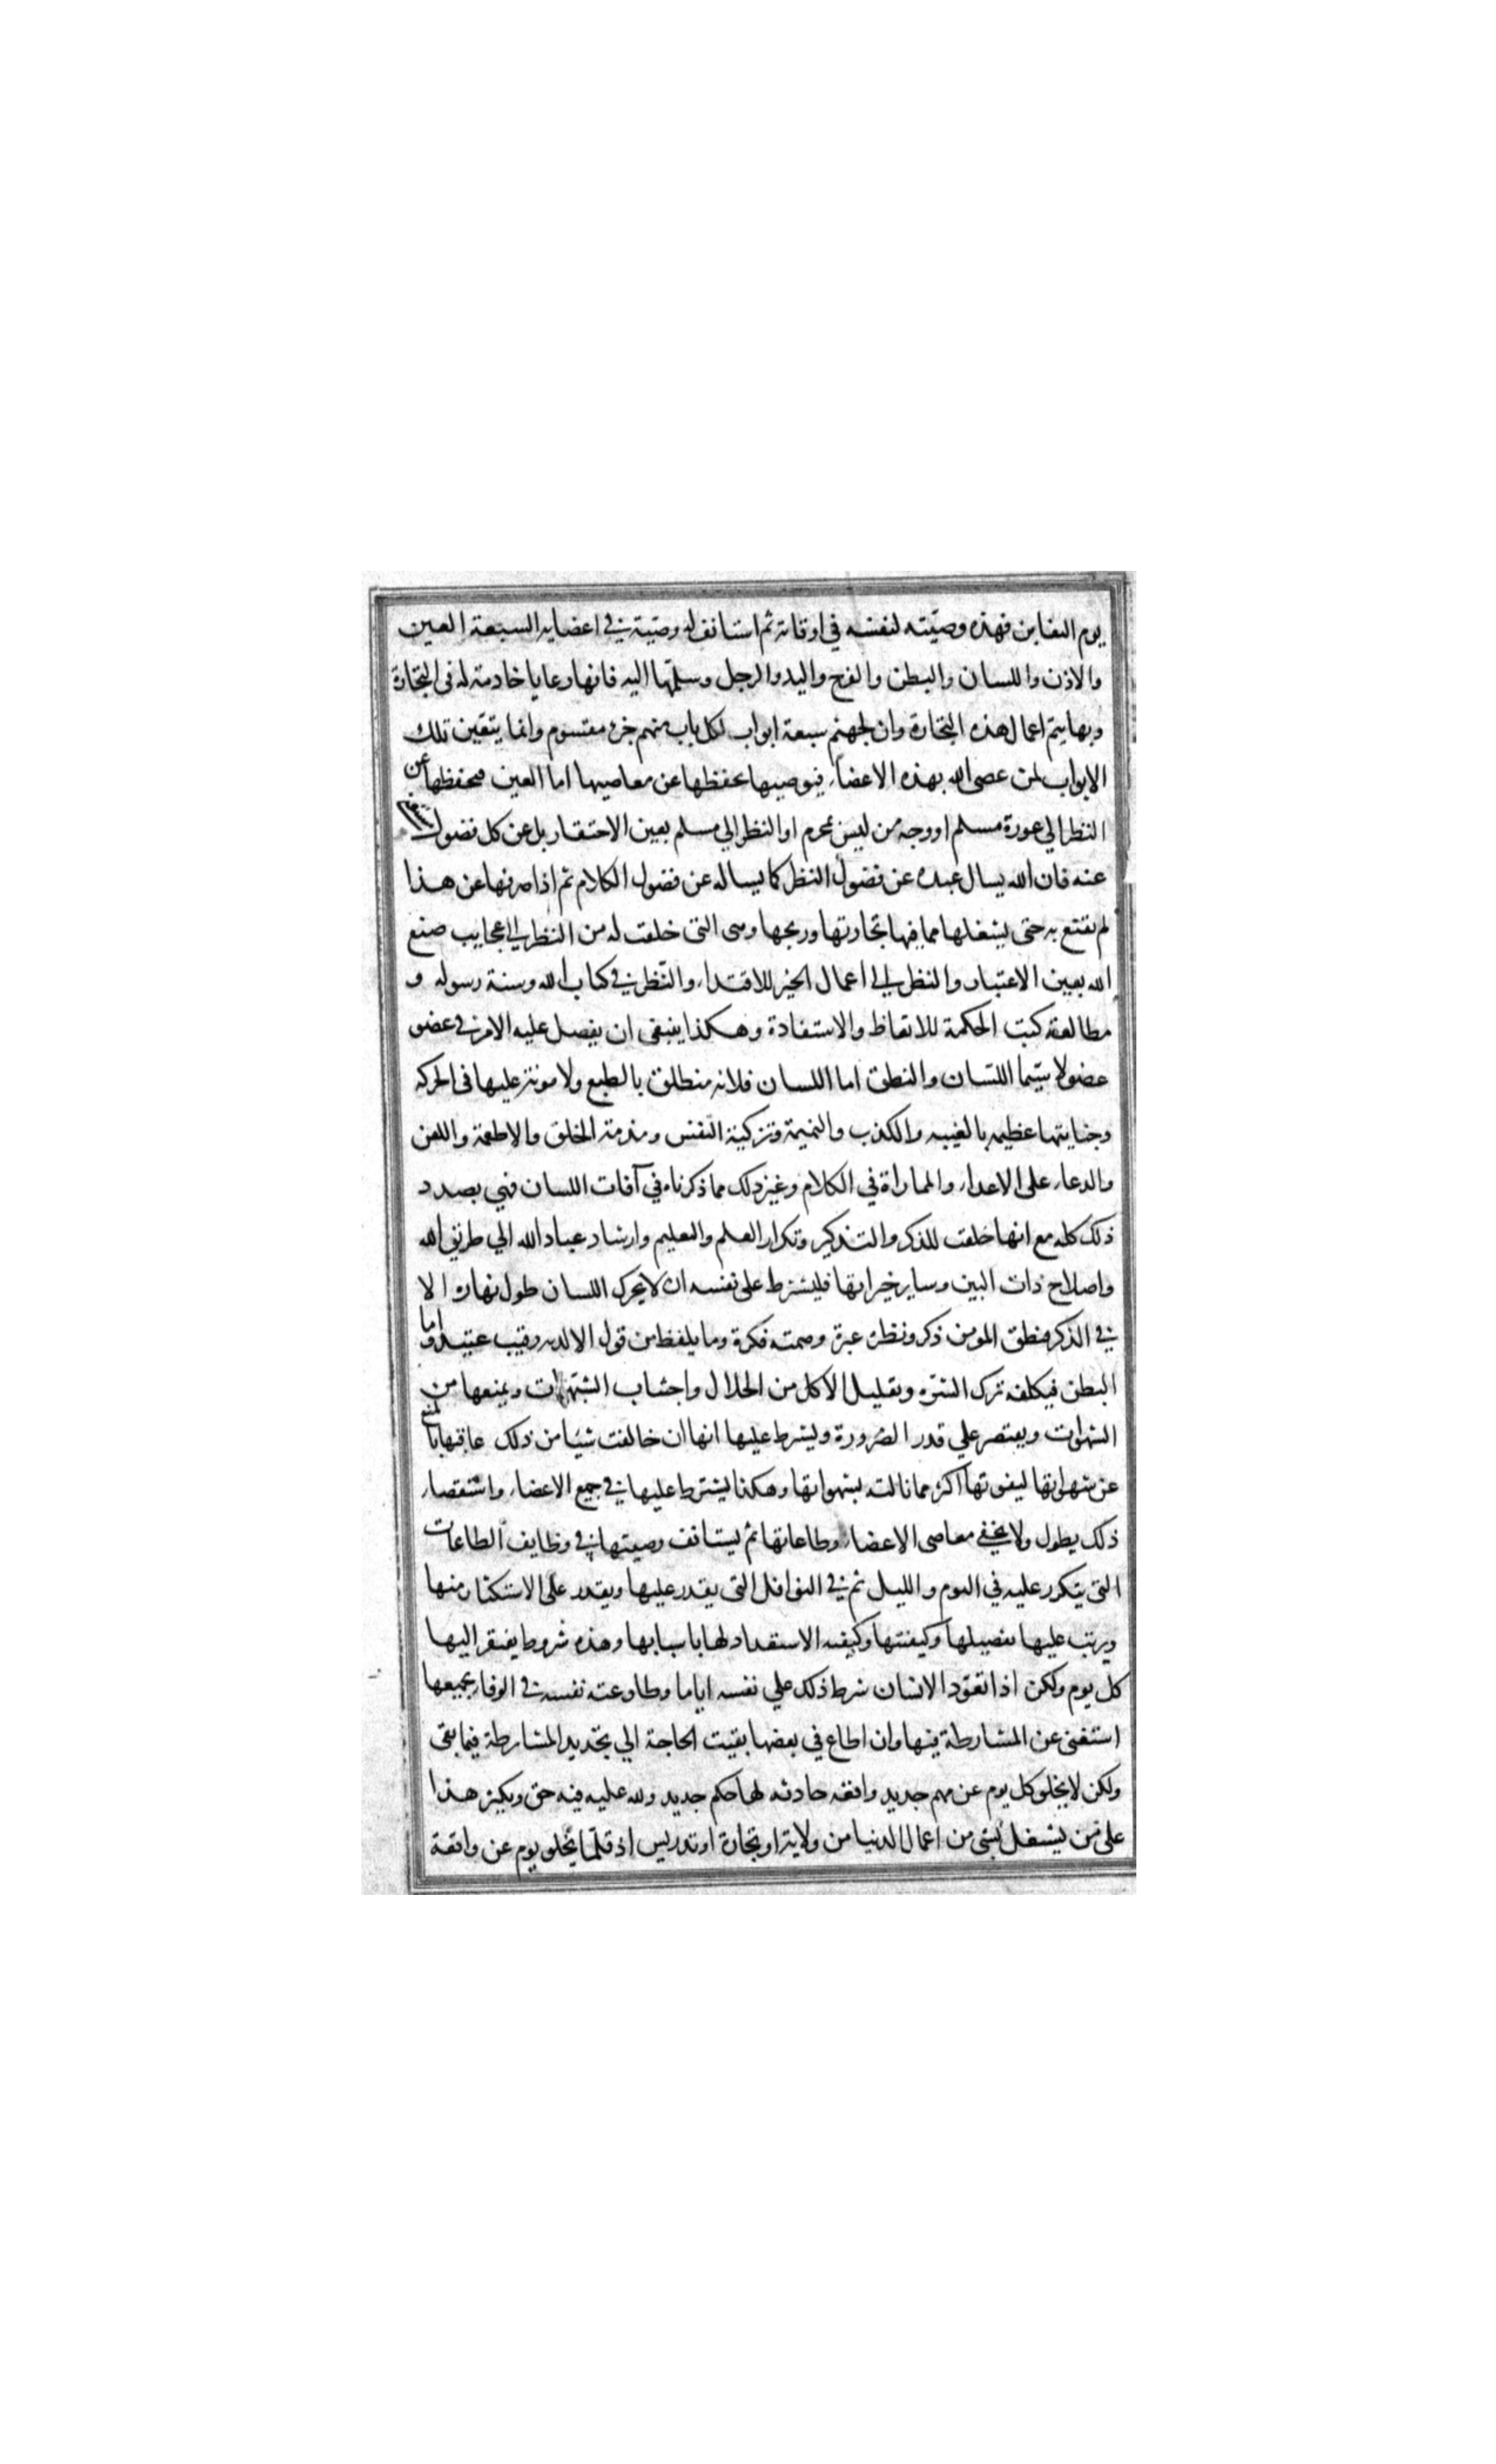 يوم التغابن فهذه وصيته لنفسه في اوقاته ثم استانف له وصية في اعضايه السبعة العين
والاذن واللسان والبطن والفرج واليد والرجل وسلمها اليه فانها رعايا خادمة له في التجارة
وبها يتم اعمال هذه التجارة وان لجهنم سبعة ابواب لكل باب منهم جزء مقسوم وانما يتعين تلك
الابواب لمن عصى الله بهذه الاعضاء فيوصيها بحفظها عن معاصيها اما العين فيحفظها عن
النظر الى عورة مسلم او وجه من ليس بمحرم او النظر الي مسلم بعين الاحتقار بل عن كل فضول
عنه فان الله يسال عبده عن فضول النظر كما يساله عن فضول الكلام ثم اذا صرفها عن هذا
لم يقنع به حتى يشغلها مما فيها تجارتها وربحها وهى التى خلقت له من النظر الى عجايب صنع
الله بعين الاعتبار والنظر الى اعمال الخير للاقتداء والنظر في كتاب الله وسنة رسوله و
مطالعة كتب الحكمة للاتعاظ والاستفادة وهكذا ينبغى ان يفصل عليه الامر في عضو
عضو لا سيما اللسان والنطق اما اللسان فلانه منطلق بالطبع ولا مونة عليها فى الحركه
وجنايتها عظيمه بالغيبه والكذب والنميمة وتزكية النفس ومذمة الخلق والاطعمة واللعن
والدعاء على الاعداء والمماراة في الكلام وغير ذلك مما ذكرناه في آفات اللسان فهي بصدد
ذلك كله مع انها خلقت للذكر والتذكير وتكرار العلم والتعليم وارشاد عباد الله الي طريق الله
واصلاح ذات البين وساير خيراتها فليشترط على نفسه ان لا يحرك اللسان طول نهاره الا
في الذكر فنطق المومن ذكر ونظره عبرة وصمته فكرة وما يلفظ من قول الا لديه رقيب عتيد واما
البطن فيكلفه ترك الشره وتقليل الاكل من الحلال واجتناب الشبهات ويمنعها من
الشهوات ويقتصر علي قدر الضرورة ويشرط عليها انها ان خالفت شيئا من ذلك عاقبها بالمنع
عن شهواتها ليفوتها اكثر مما نالته بشهواتها وهكذا يشترط عليها في جميع الاعضاء واستقصاء
ذلك يطول ولا يخفى معاصى الاعضاء وطاعاتها ثم يستانف وصيتها في وظايف الطاعات
التى يتكرر عليه في اليوم والليل ثم في النوافل التى يقدر عليها ويقدر على الاستكثار منها
ويرتب عليها تفصيلها وكيفيتها وكيفيه الاستعداد لها باسبابها وهذه شروط يفتقر اليها
كل يوم ولكن اذا تعود الانسان شرط ذلك علي نفسه اياما وطاوعته نفسه في الوفاء بجميعها
استغنى عن المشارطة فيها وان اطاع في بعضها بقيت الحاجة الي تجديد المشارطة فيما بقى
ولكن لا يخلو كل يوم عن مهم جديد واقعه حادثه لها حكم جديد ولله عليه فيه حق ويكثر هذا
على من يشغل بشى من اعمال الدنيا من ولاية او تجارة او تدريس اذ قلما يخلو يوم عن واقعة